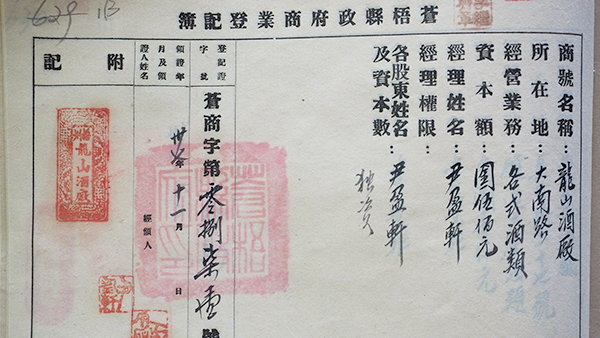 629 1B
蒼梧縣政府商業登記簿
商號名稱：龍山酒廠
所在地：大南路
經營業務：各式酒類
資本額：伍佰元
經理姓名：尹盈軒
經理權限：
各股東姓名：尹盈軒
及資本數 独資
登記證字號
蒼商字第零捌柒壹號
領證年月及領證人姓名
十一月 日
經領人
附記
龍山酒廠
蒼梧